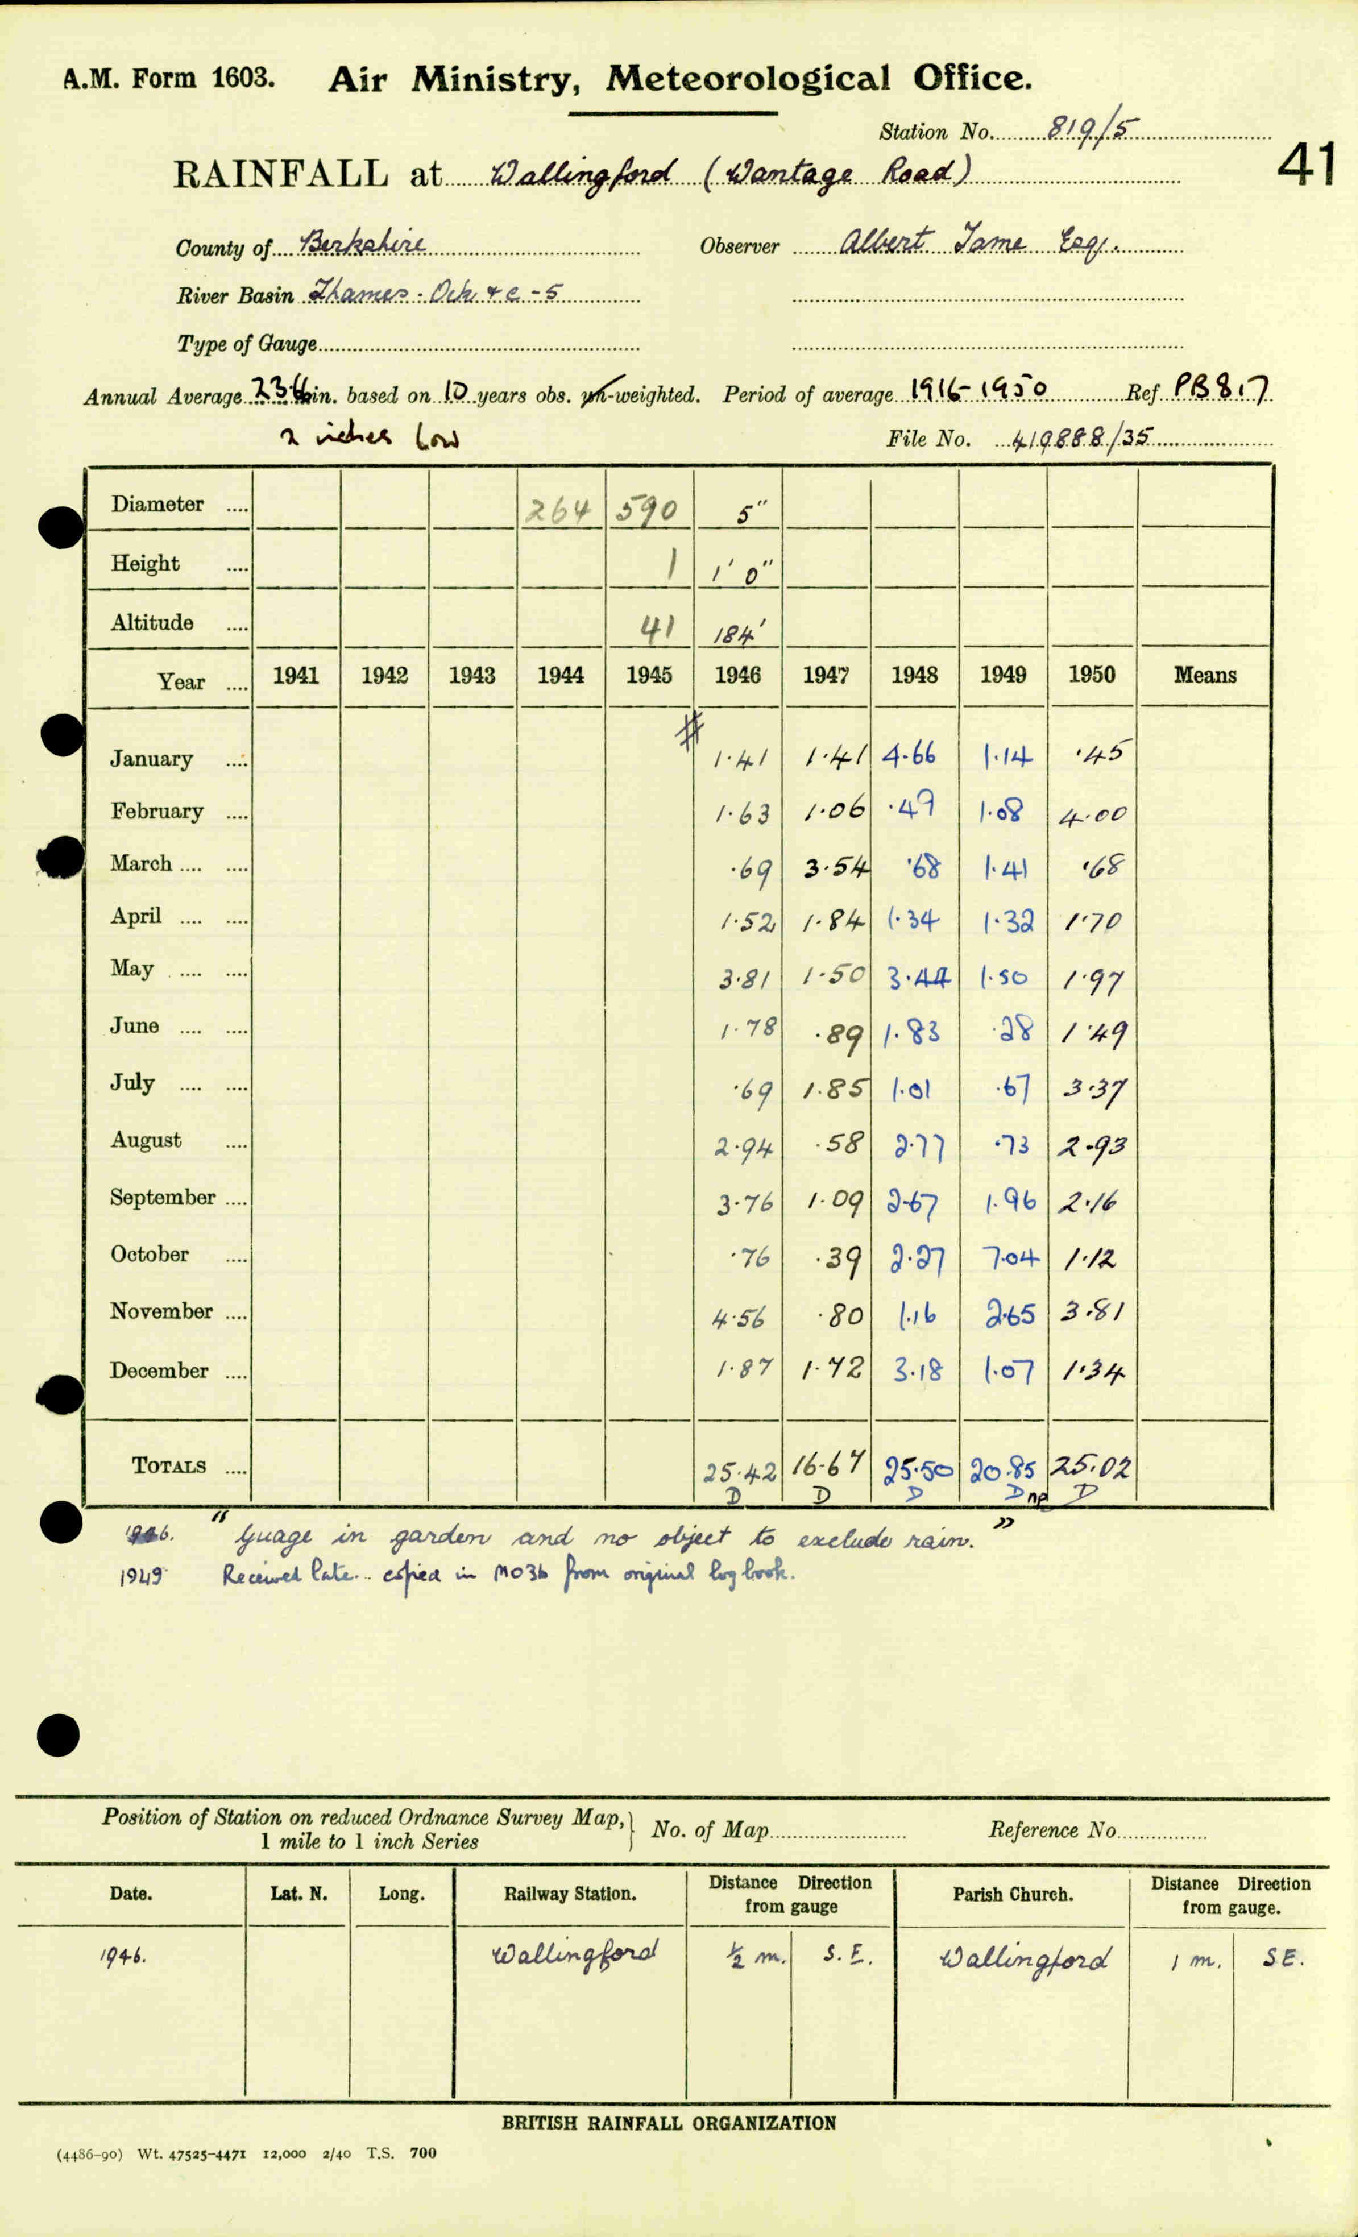 A.M. Form 1603. Air Ministry, Meteorological Office.
Station No. 819/5
41
RAINFALL at Wallingford (Wantage Road)
County of Berkshire Observer Albert Tame Esq.
River Basin Thames - Ock & c - 5
Type of Gauge
Annual Average in. based on 10 years obs. un-weighted. Period of average 1916-1950 Ref. PB 8.17
2 inches low File No. 419888/35
Diameter .... 264 590 5"
Height .... 1 1' 0"
Altitude .... 41 184'
Year .... 1941 1942 1943 1944 1945 1946 1947 1948 1949 1950 Means
#
January .... 1.41 1.41 4.66 1.14 .45
February .... 1.63 1.06 .49 1.08 4.00
March .... .... .69 3.54 .68 1.41 .68
April .... .... 1.52 1.84 1.34 1.32 1.70
May .... .... 3.81 1.50 3.44 1.50 1.97
June .... .... 1.78 .89 1.83 .28 1.49
July .... .... .69 1.85 1.01 .67 3.37
August .... 2.94 .58 2.77 .73 2.93
September .... 3.76 1.09 2.67 1.96 2.16
October .... .76 .39 2.27 7.04 1.12
November .... 4.56 .80 1.16 2.65 3.81
December .... 1.87 1.72 3.18 1.07 1.34
TOTALS .... 25.42 16.67 25.50 20.85 25.02
D D D D np D
1946. "Guage in garden and no object to exclude rain."
1949 Received late.. copied in MO3b from original log book.
Position of Station on reduced Ordnance Survey Map, 1 mile to 1 inch Series } No. of Map Reference No.
Date. Lat. N. Long. Railway Station. Distance Direction from gauge Parish Church. Distance Direction from gauge.
1946. Wallingford ½ m. S.E. Wallingford 1 m. S.E.
BRITISH RAINFALL ORGANIZATION
(4486-90) Wt. 47525-4471 12,000 2/40 T.S. 700